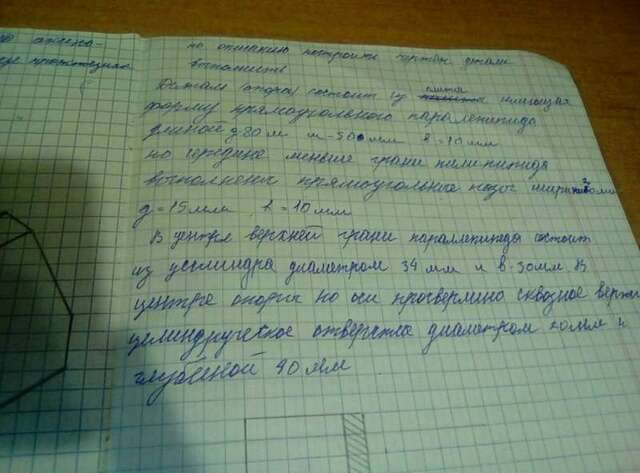 по описанию построить чертеж детали
выполнить
Деталь опора состоит из плита имеющая
форму прямоугольного параллепипеда
длиной д-80 м ш-50 мм в=10мм
по середине меньше грани
выполнены прямоугольные пазы
д=15мм, в=10мм
В центре верхней грани параллепипеда состоит
из цилиндра диаметром 34 мм и в-30мм. В
центре опоры по оси просверлино сквозное
целиндрическое отверстие диаметром 20мм и
глубеной 40 мм